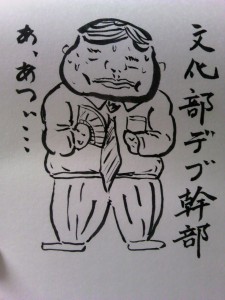 文化部デブ幹部
あ、あつい…